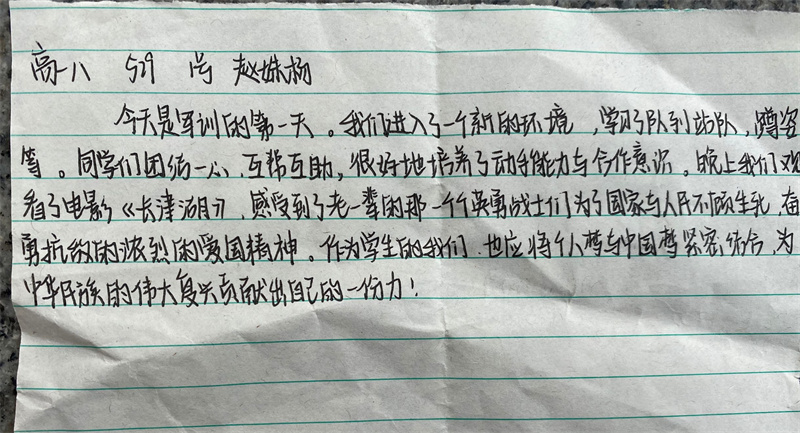 高一八 529 号 赵姝杨
今天是军训的第一天。我们进入了一个新的环境,学习了队列站队,蹲姿
等。同学们团结一心、互帮互助,很好地培养了动手能力与合作意识。晚上我们观
看了电影《长津湖》,感受到了老一辈的那一个个英勇战士们为了国家与人民不顾生死,奋
勇抗敌的浓烈的爱国精神。作为学生的我们,也应将个人梦与中国梦紧密结合,为
中华民族的伟大复兴贡献出自己的一份力!